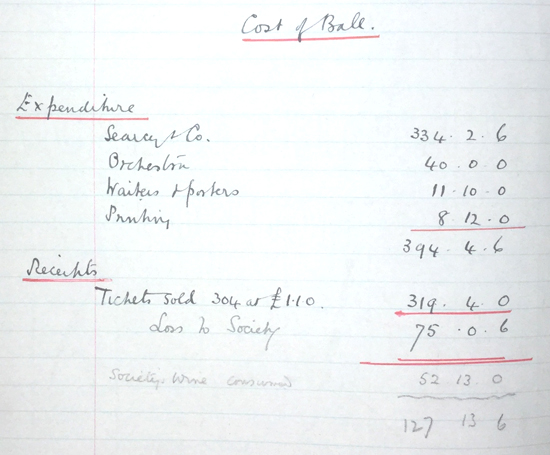 Cost of Ball.
Expenditure
Searcy & Co. 334. 2. 6
Orchestra 40. 0. 0
Waiters & porters 11. 10. 0
Printing 8 12. 0
394. 4. 6
Receipts
Tickets sold 304 at £1.10. 319. 4. 0
Loss to Society 75. 0. 6
Society wine consumed 52 13. 0
127 13 6